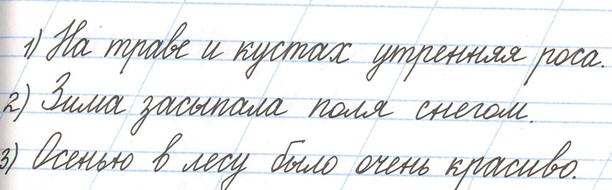 1) На траве и кустах утренняя роса.
2) Зима засыпала поля снегом.
3) Осенью в лесу было очень красиво.